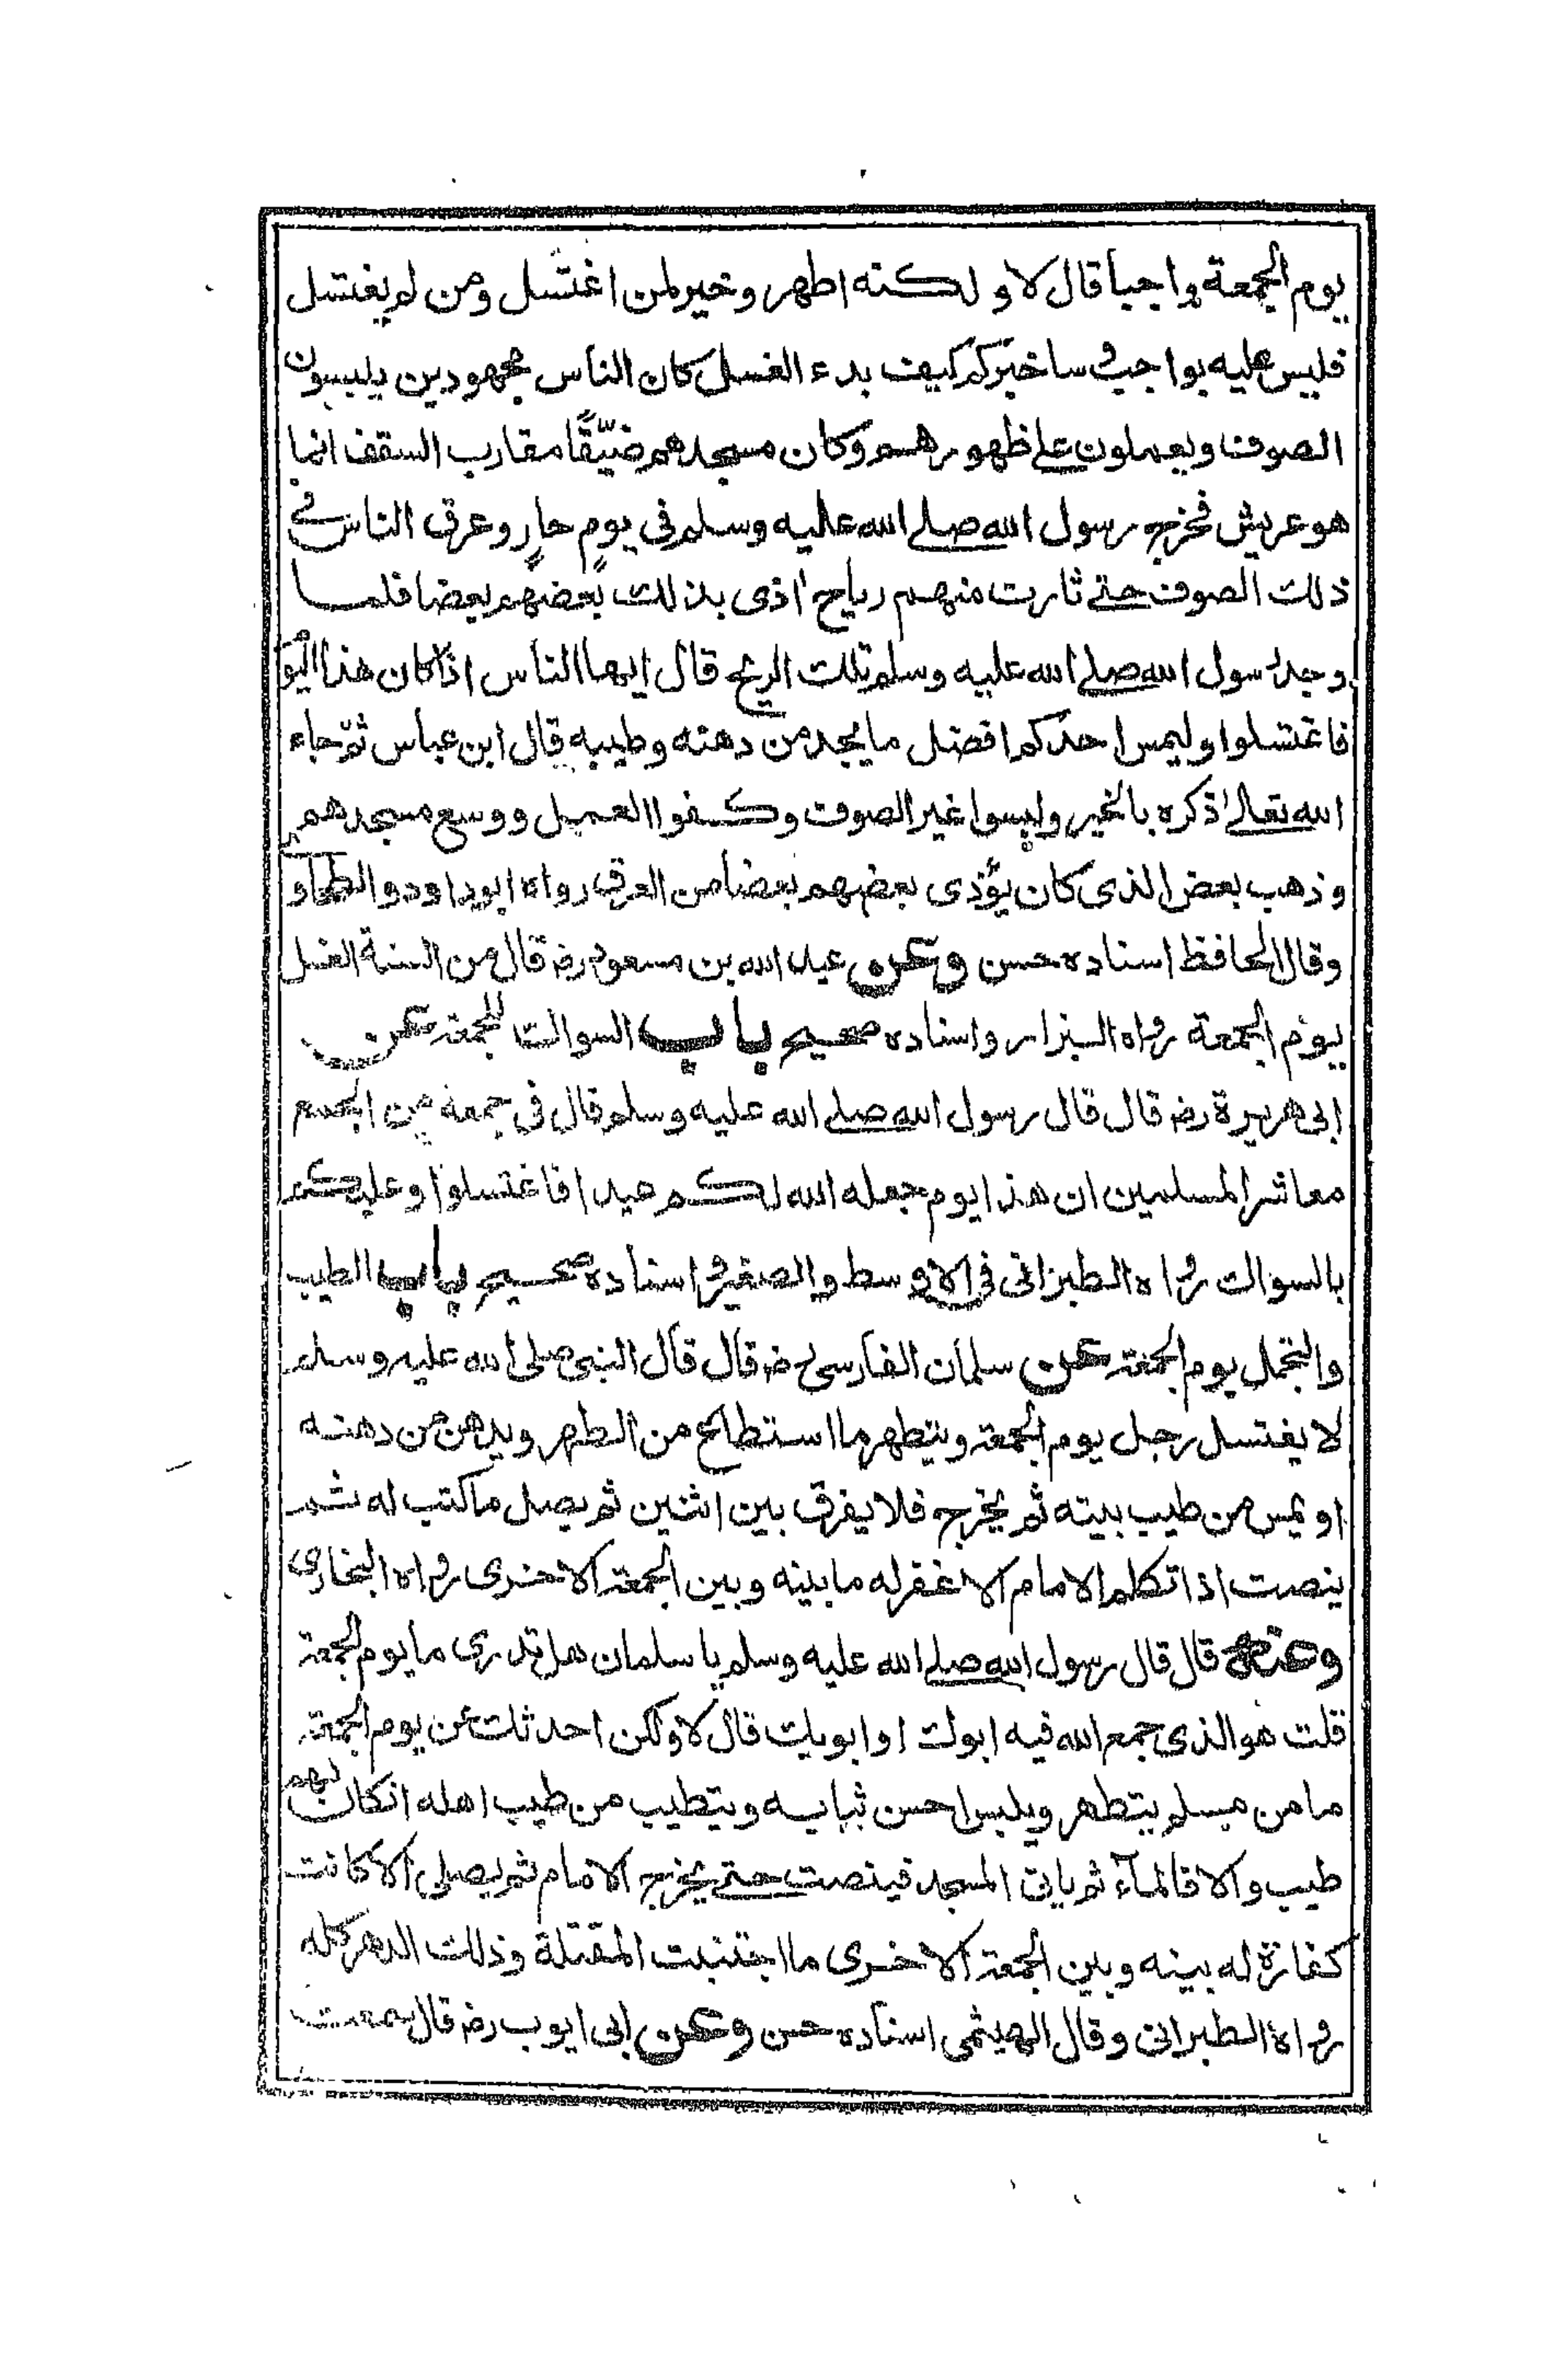 يوم الجمعة واجبا قال لا ولكنه اطهر وخير لمن اغتسل ومن لم يغتسل
فليس عليه بواجب وساخبركم كيف بدء الغسل كان الناس مجهودين يلبسون
الصوف ويعملون على ظهورهم وكان مسجدهم ضيّقًا مقارب السقف انما
هو عريش فخرج رسول الله صلى الله عليه وسلم في يومٍ حارٍ وعرق الناس في
ذلك الصوف حتى ثارت منهم رياح اذى بذلك بعضهم بعضا فلما
وجد رسول الله صلى الله عليه وسلم تلك الريح قال ايها الناس اذا كان هذا اليوم
فاغتسلوا وليمس احدكم افضل ما يجد من دهنه وطيبه قال ابن عباس ثم جاء
الله تعالى ذكره بالخير ولبسوا غير الصوف وكفوا العمل ووسع مسجدهم
وذهب بعض الذي كان يؤذى بعضهم بعضا من العرق رواه ابو داود والطحاوي
وقال الحافظ اسناده حسن وعن عبد الله بن مسعود رضـ قال من السنة الغسل
يوم الجمعة رواه البزار واسناده صحيح باب السواك للجمعة عن
ابى هريرة رضـ قال قال رسول الله صلى الله عليه وسلم قال في جمعة من الجمع
معاشر المسلمين ان هذا يوم جعله الله لكم عيدا فاغتسلوا وعليكم
بالسواك رواه الطبرانى فى الاوسط والصغير واسناده صحيح باب الطيب
والتجمل يوم الجمعة عن سلمان الفارسى رضـ قال قال النبى صلى الله عليه وسلم
لا يغتسل رجل يوم الجمعة ويتطهر ما استطاع من الطهر ويدهن من دهنه
او يمس من طيب بيته ثم يخرج فلا يفرق بين اثنين ثم يصل ما كتب له ثم
ينصت اذا تكلم الامام الا غفر له ما بينه وبين الجمعة الاخرى رواه البخارى
وعنه قال قال رسول الله صلى الله عليه وسلم يا سلمان هل تدرى ما يوم الجمعة
قلت هو الذى جمع الله فيه ابوك او ابويك قال لا ولكن احدثك عن يوم الجمعة
ما من مسلم يتطهر ويلبس احسن ثيابه ويتطيب من طيب اهله انكان لهم
طيب والا فالمآء ثم ياتى المسجد فينصت حتى يخرج الامام ثم يصلى الا كانت
كفارة له بينه وبين الجمعة الاخرى ما اجتنبت المقتلة وذلك الدهر كله
رواه الطبرانى وقال الهيثمى اسناده حسن وعن ابى ايوب رضـ قال سمعت